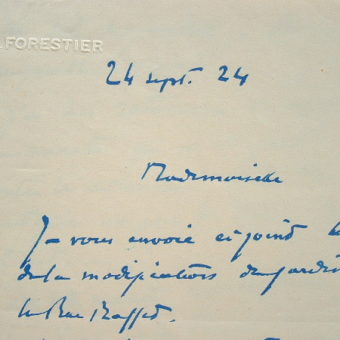 .FORESTIER
24 sept. 24
Mademoiselle
Je vous envoie ci joint
de la modification du jardin
Rue Raffet.